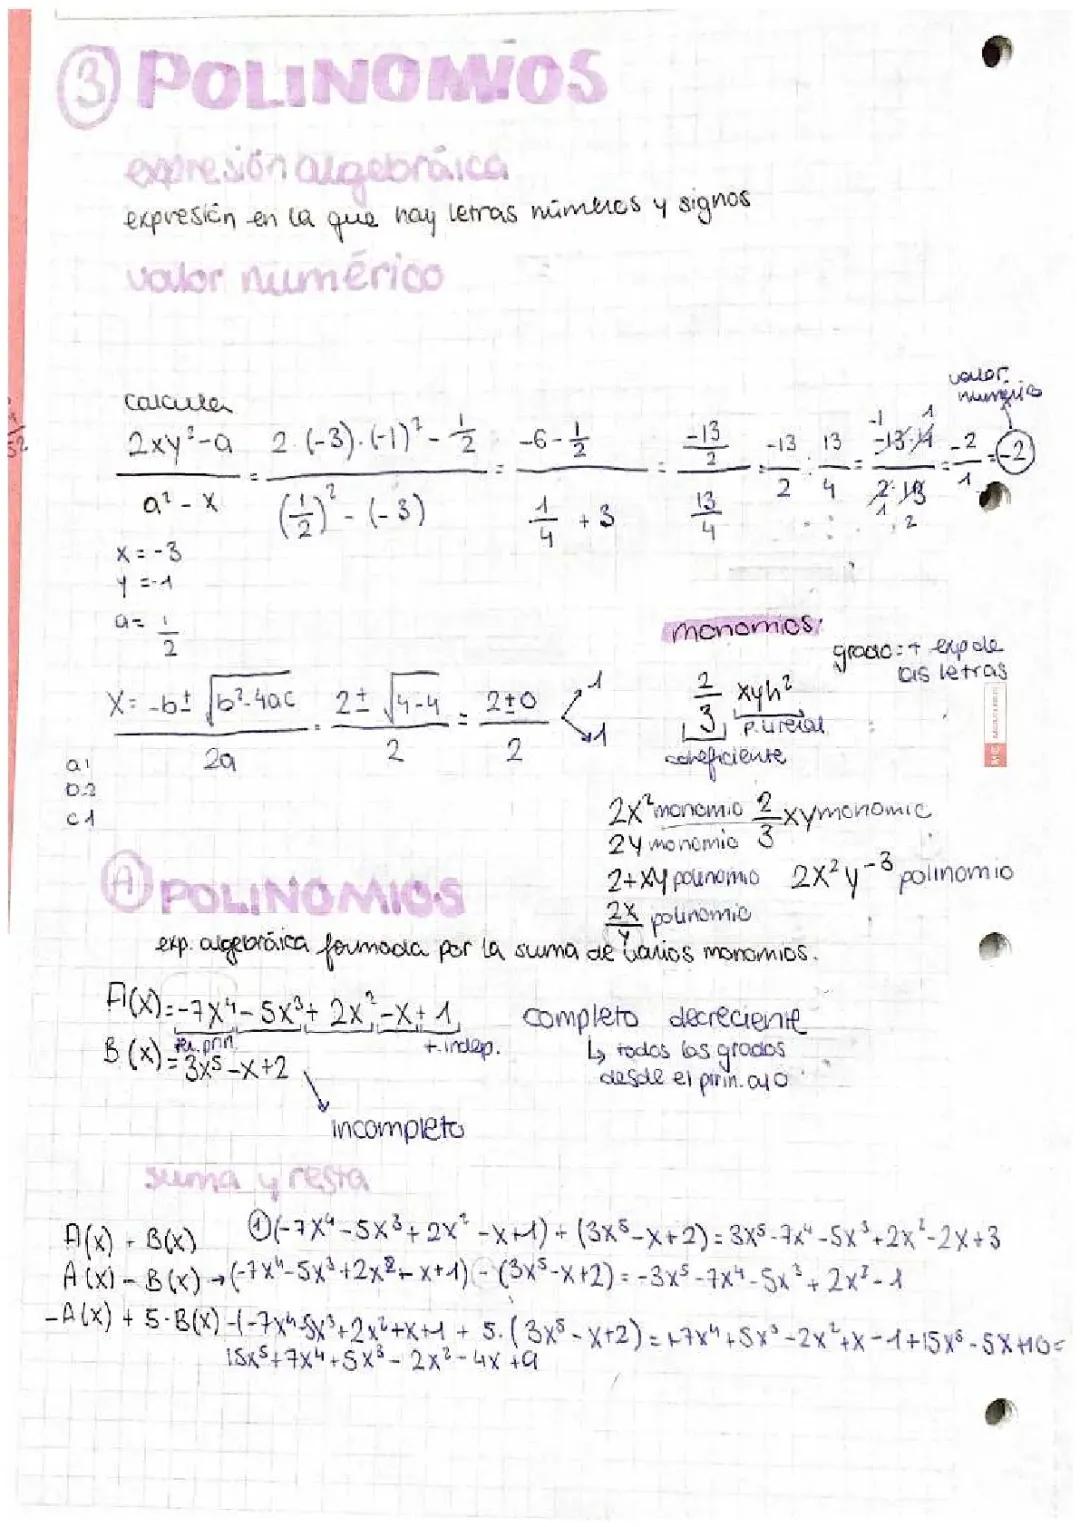 ③ POLINOMIOS
expresión algebráica
expresión en la que hay letras números y signos
valor numérico
calcular
valor numérico
(2xy²-a)/(a²-x) = (2·(-3)·(-1)²-1/2)/((1/2)²-(-3)) = (-6-1/2)/(1/4+3) = (-13/2)/(13/4) = -13/2 : 13/4 = = -2/1 = -2
x=-3
y=-1
a=1/2
monomios:
grado: + exp de las letras
2/3 xyh²
coeficiente
p. literal
x = (-b±√(b²-4ac))/2a = (2±√(4-4))/2 = (2±0)/2 < 1 1
a 1
b-2
c 1
2x² monomio 2/3 xy monomio
2y monomio
2+xy polinomio 2x²y⁻³ polinomio
2x/y polinomio
Ⓐ POLINOMIOS
exp. algebráica formada por la suma de varios monomios.
A(x)=-7x⁴-5x³+2x²-x+1
t. indep.
completo decreciente
↳ todos los grados
desde el prin. a 0
B(x)=3x⁵-x+2
incompleto
suma y resta
A(x)+B(x) ①(-7x⁴-5x³+2x²-x+1)+(3x⁵-x+2)=3x⁵-7x⁴-5x³+2x²-2x+3
A(x)-B(x)→(-7x⁴-5x³+2x²-x+1)-(3x⁵-x+2)=-3x⁵-7x⁴-5x³+2x²-1
-A(x)+5·B(x)-(-7x⁴-5x³+2x²+x+1+5·(3x⁵-x+2)=+7x⁴+5x³-2x²+x-1+15x⁵-5x+10=
15x⁵+7x⁴+5x³-2x²-4x+9